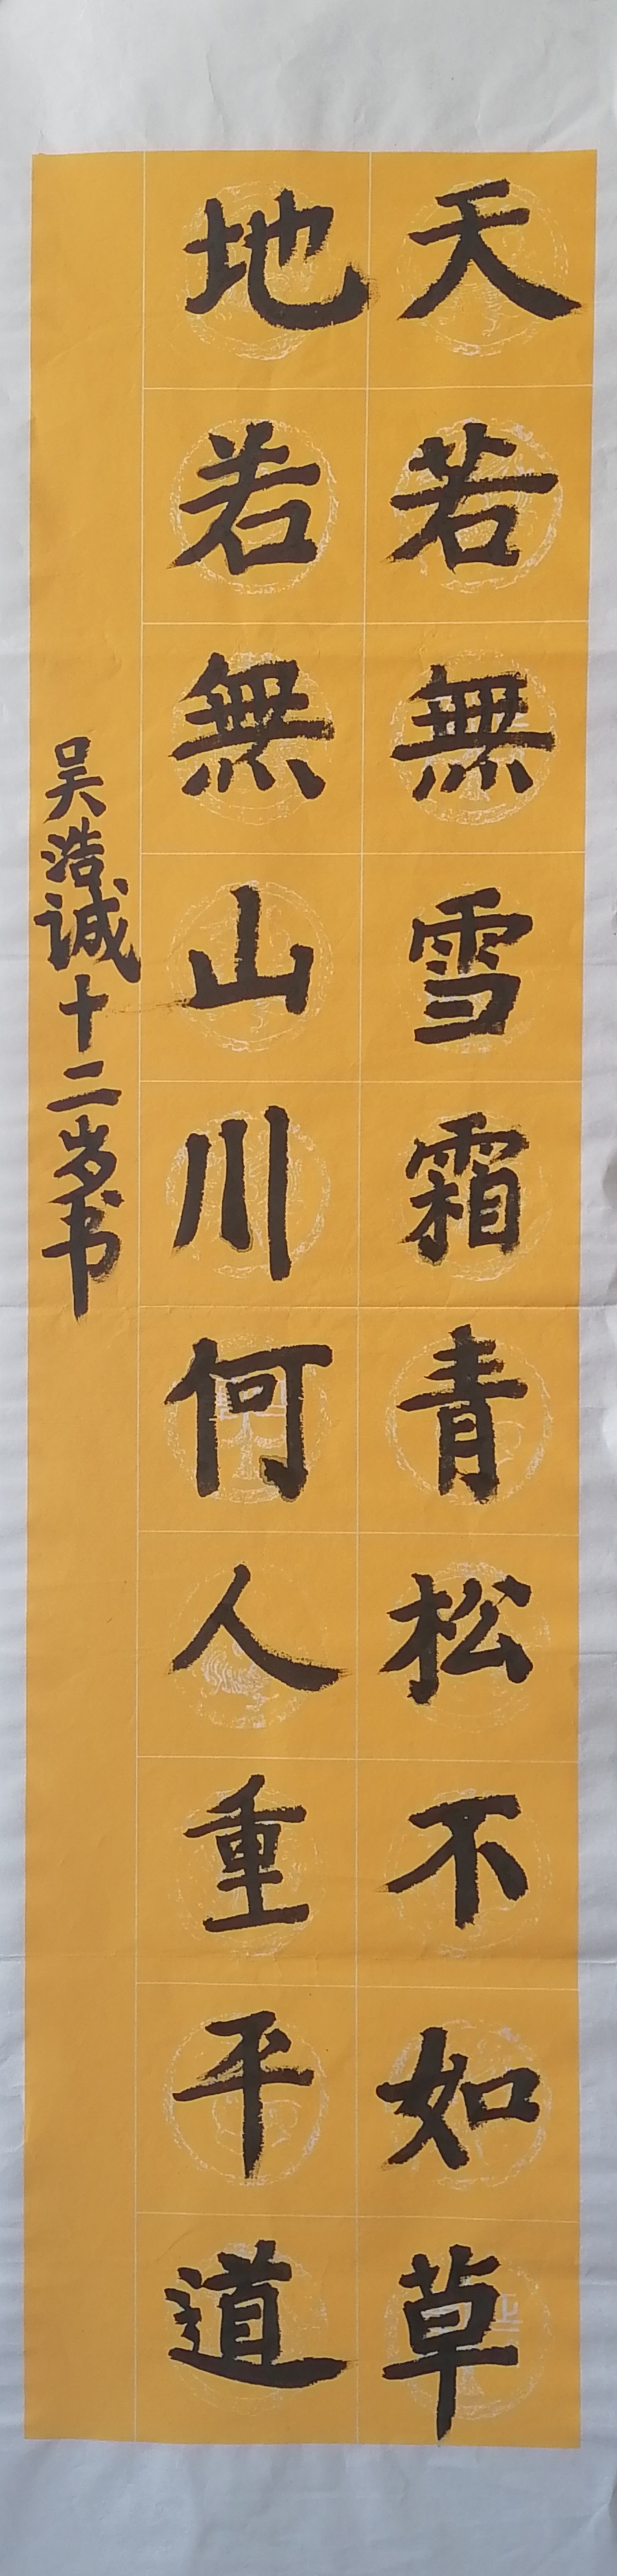 天若無雪霜青松不如草
地若無山川何人重平道
吴浩诚十二岁书